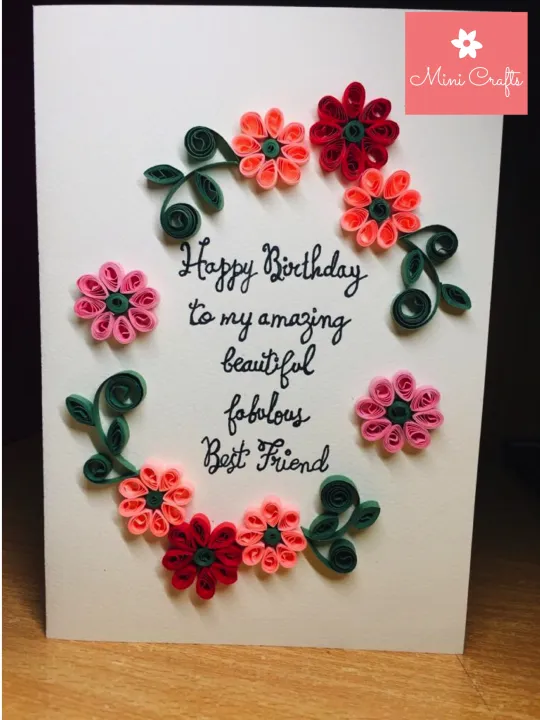 Mini Crafts
Happy Birthday
to my amazing
beautiful
fabulous
Best Friend